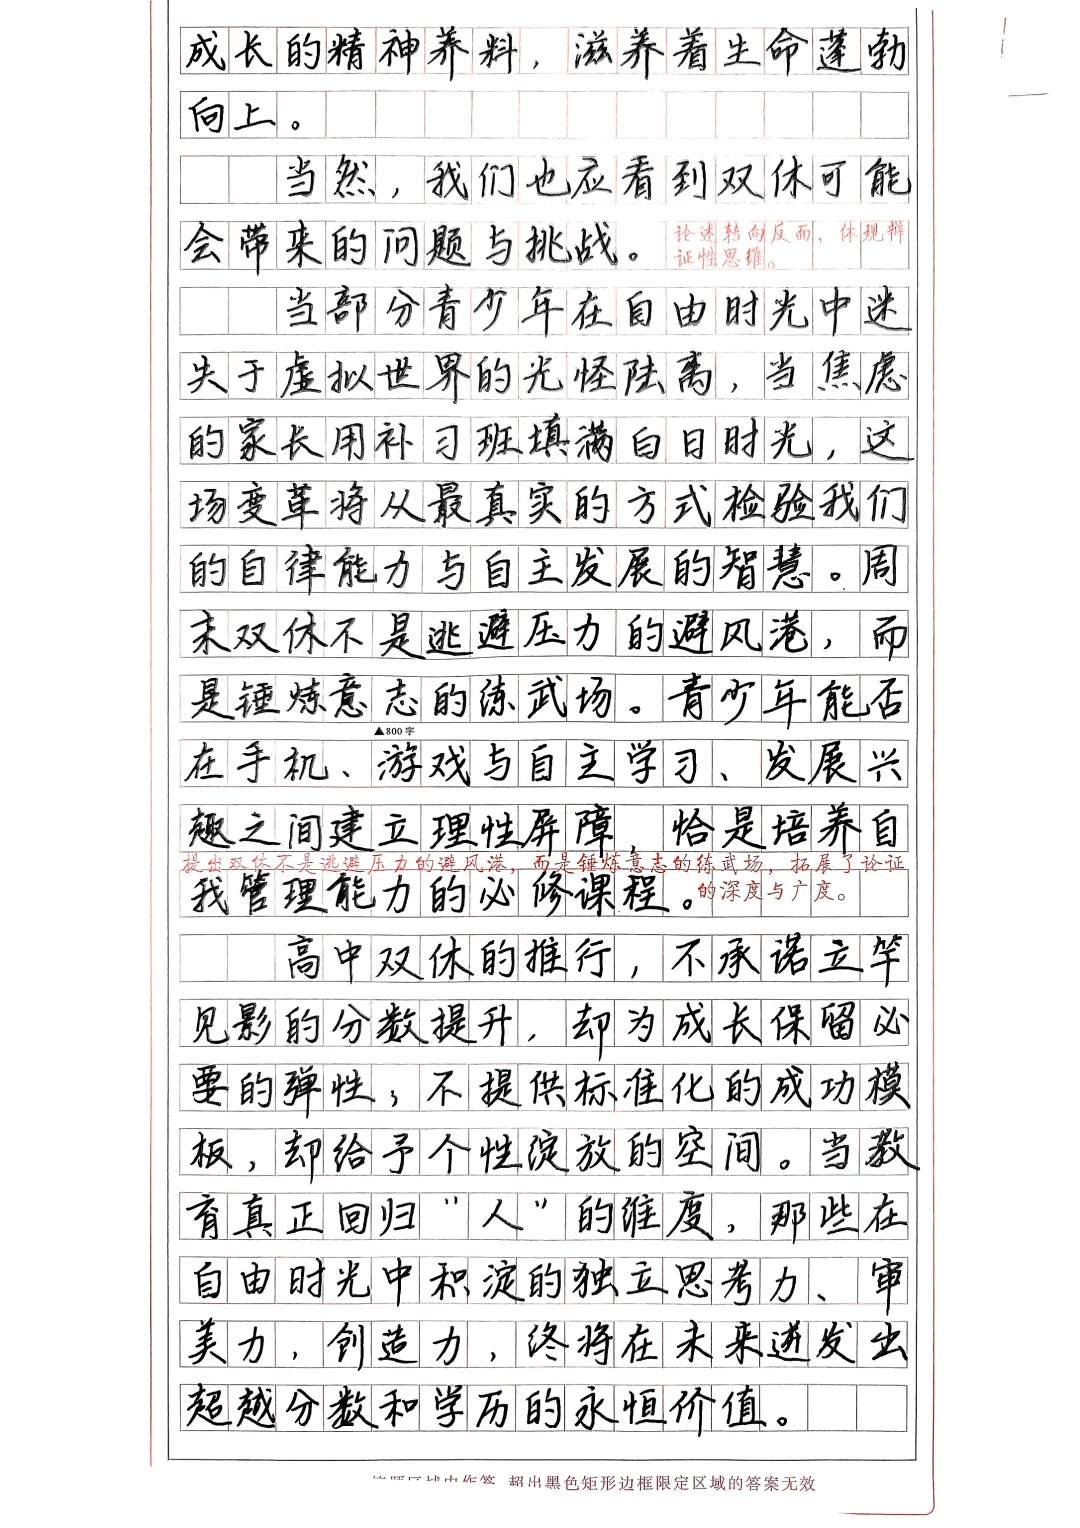 成长的精神养料，滋养着生命蓬勃
向上。
当然，我们也应看到双休可能
会带来的问题与挑战。
论述转向反面，体现辩
证性思维。
当部分青少年在自由时光中迷
失于虚拟世界的光怪陆离，当焦虑
的家长用补习班填满白日时光，这
场变革将从最真实的方式检验我们
的自律能力与自主发展的智慧。周
末双休不是逃避压力的避风港，而
是锤炼意志的练武场。青少年能否
▲800字
在手机、游戏与自主学习、发展兴
趣之间建立理性屏障，恰是培养自
提出双休不是逃避压力的避风港，而是锤炼意志的练武场，拓展了论证
的深度与广度。
我管理能力的必修课程。
高中双休的推行，不承诺立竿
见影的分数提升，却为成长保留必
要的弹性；不提供标准化的成功模
板，却给予个性淀放的空间。当教
育真正回归“人”的维度，那些在
自由时光中积淀的独立思考力、审
美力，创造力，终将在未来迸发出
超越分数和学历的永恒价值。
答题区域内作答 超出黑色矩形边框限定区域的答案无效